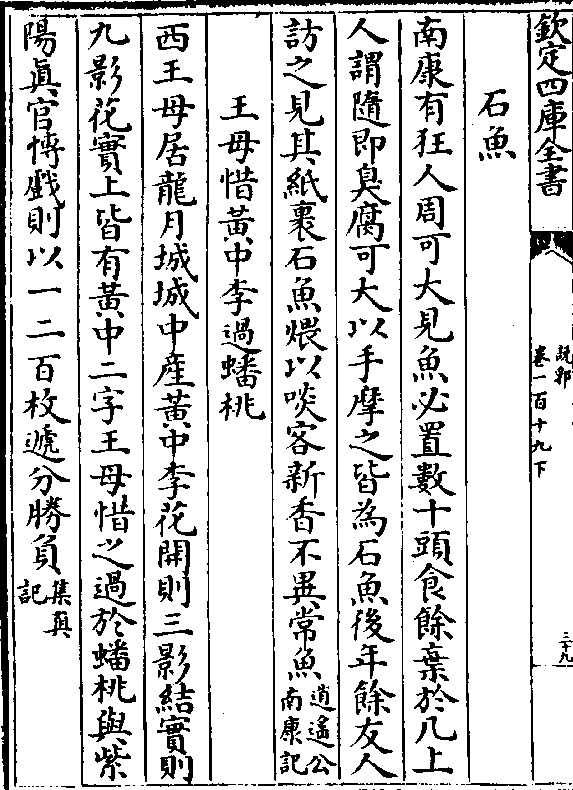 欽定四庫全書
說郛
卷一百十九下
三十九
石魚
南康有狂人周可大見魚必置數十頭食餘棄於几上
人謂隨即臭腐可大以手摩之皆為石魚後年餘友人
訪之見其紙裹石魚煨以啖客新香不異常魚逍遙公
南康記
王母惜黃中李過蟠桃
西王母居龍月城城中產黃中李花開則三影結實則
九影花實上皆有黃中二字王母惜之過於蟠桃與紫
陽眞官博戲則以一二百枚遞分勝負集眞
記